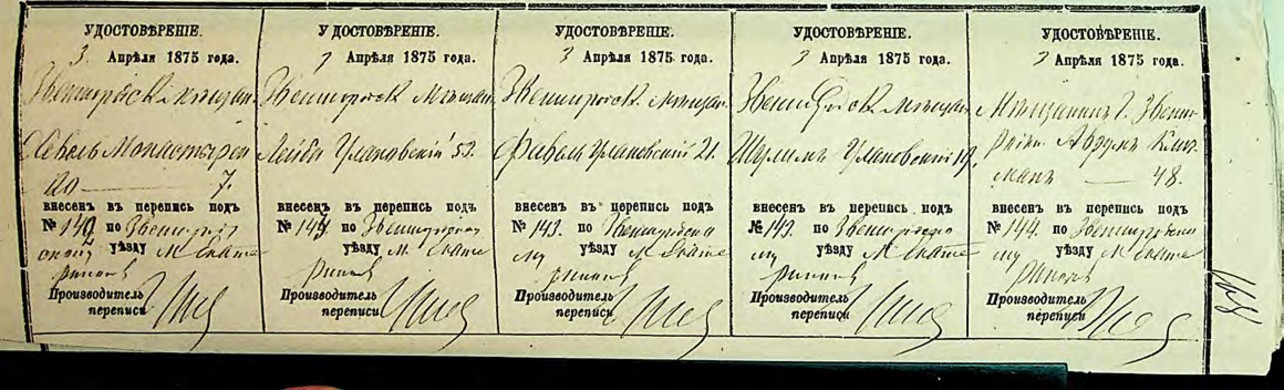 УДОСТОВѢРЕНІЕ.
3 Апрѣля 1875 года.
Звенигородск мѣщан
Монастырск
7.
внесенъ въ перепись подъ
№ 142 по Звенигород
скому уѣзду М Екате
ринополь
Производитель
переписи
У ДОСТОВѢРЕНІЕ.
3 Апрѣля 1875 года.
Звенигородск мѣщан
Лейба Улановскій 53.
внесенъ въ перепись подъ
№ 143 по Звенигородско
уѣзду М. Екате
ринополь
Производитель
переписи
УДОСТОВѢРЕНІЕ.
3 Апрѣля 1875 года.
Звенигородск. мѣщан
Файвель Улановскій 21.
внесенъ въ перепись подъ
№ 143. по Звенигородско
му уѣзду М Екате
ринополь
Производитель
переписи
УДОСТОВѢРЕНІЕ.
3 Апрѣля 1875 года.
Звенигородск мѣщан
Шулимъ Улановскій 19.
внесенъ въ перепись подъ
№ 143 по Звенигородско
му уѣзду М Екате
ринополь
Производитель
переписи
УДОСТОВѢРЕНІЕ.
3 Апрѣля 1875 года.
Мѣщанинъ г. Звени
48.
внесенъ въ перепись подъ
№ 144. по Звенигородско
му уѣзду М Екате
ринополь
Производитель
переписи